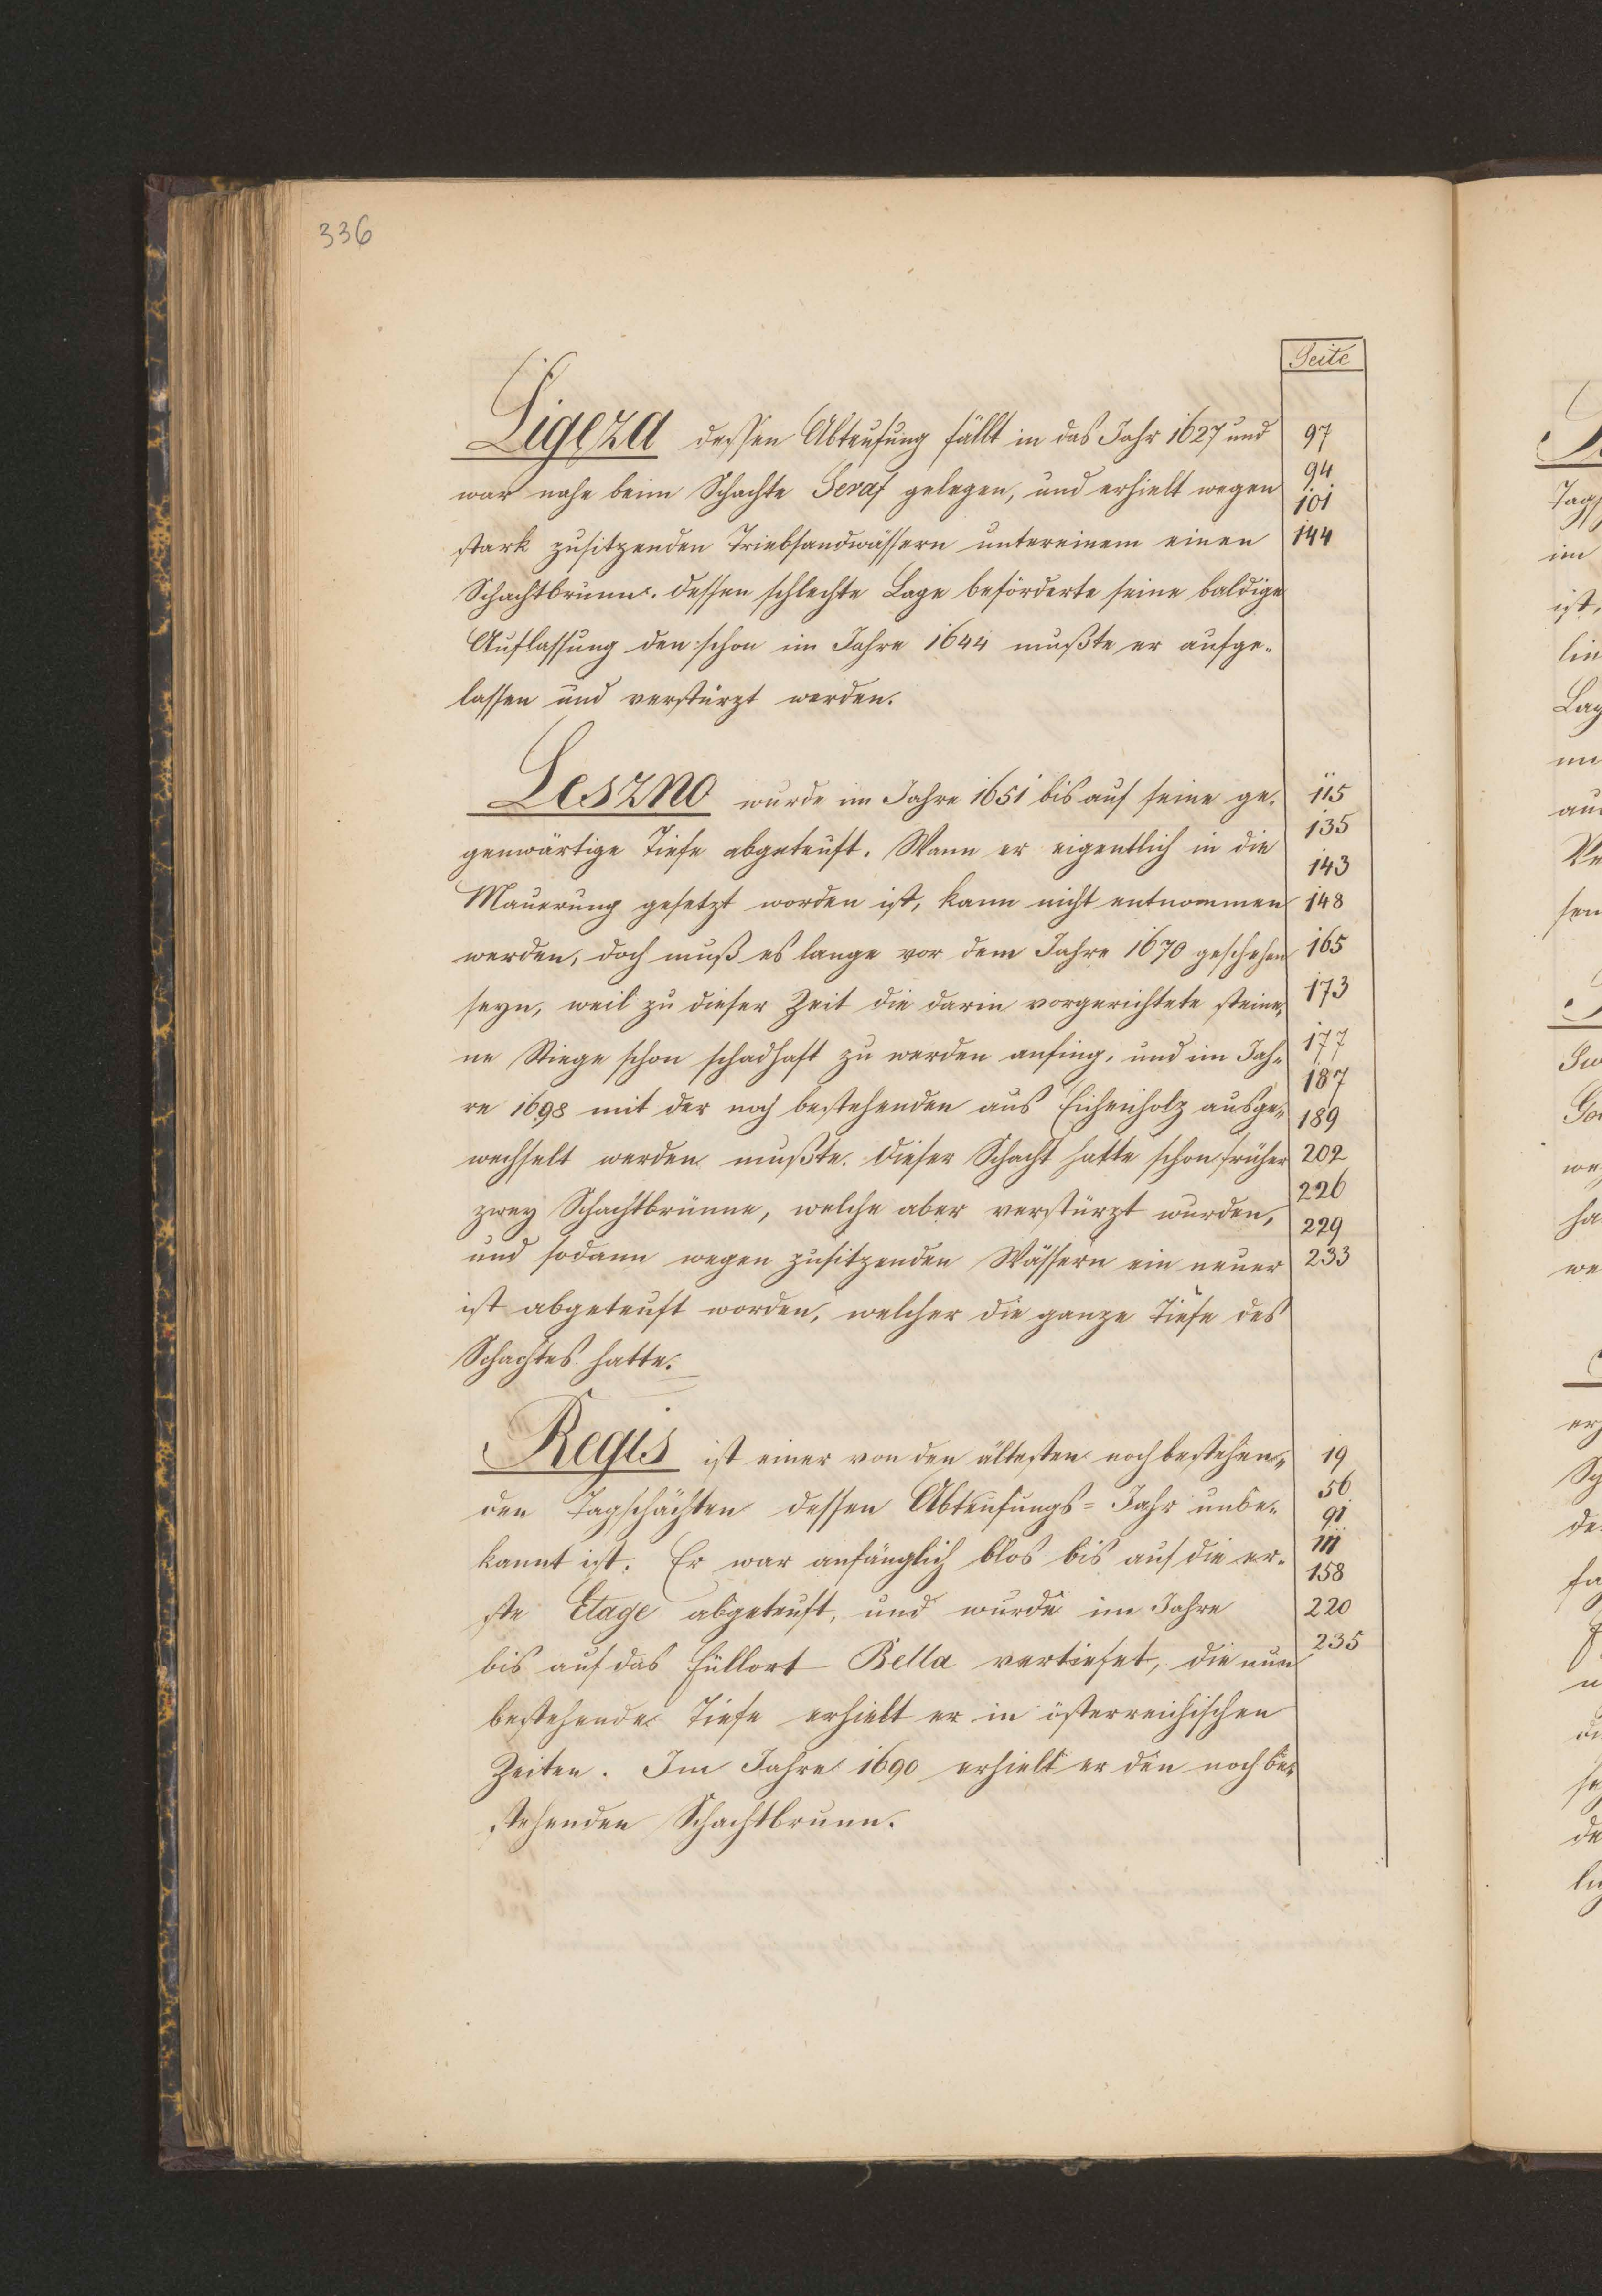 336
Seite
Ligęza dessen Abteufung fällt in das Jahr 1627 und 97
war nahe beim Schachte Seraf gelegen, und erhielt wegen 94 101
stark zusitzenden Triebsandwässern untereinem einen 144
Schachtbrunn. dessen schlechte Lage beförderte seine baldige
Auflassung den schon im Jahre 1644 mußte er aufge-
lassen und verstürzt werden.
Leszno wurde im Jahre 1651 bis auf seine ge- 115
genwärtige Tiefe abgeteuft. Wann er eigentlich in die 135
Mauerung gesetzt worden ist, kann nicht entnommen 143 148
werden, doch muß es lange vor dem Jahre 1670 geschehen 165
seyn, weil zu dieser Zeit die darin vorgerichtete steiner- 173
ne Stiege schon schadhaft zu werden anfing, und im Jah- 177
re 1698 mit der noch bestehenden aus Eichenholz ausge- 187 189
wechselt werden mußte. dieser Schacht hatte schon früher 202
zwey Schachtbrünne, welche aber verstürzt wurden, 226 229
und sodann wegen zusitzenden Wässern ein neuer 233
ist abgeteuft worden, welcher die ganze Tiefe des
Schachtes hatte.
Regis ist einer von den ältesten noch bestehen- 19
den Tagschächten dessen Abteufungs- Jahr unbe- 56 91
kannt ist. Er war anfänglich blos bis auf die er- 111 158
ste Etage abgeteuft, und wurde im Jahre 220
bis auf das Füllort Bella vertiefet, die nun 235
bestehende Tiefe erhielt er in österreichischen
Zeiten. Im Jahre 1690 erhielt er den noch be-
stehenden Schachtbrunn.